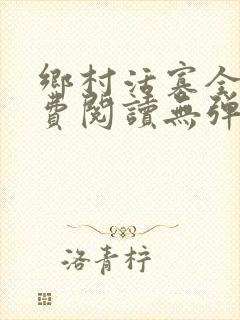 鄉村活寡全
費閱讀無彈
洛青梓